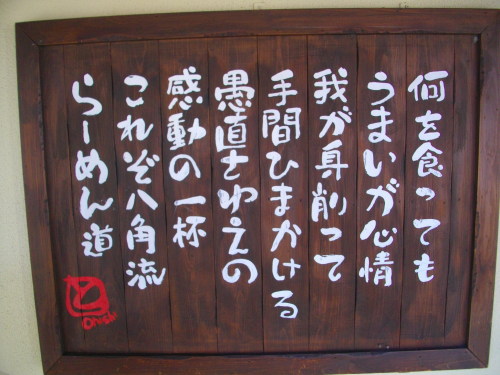 何を食っても
うまいが心情
我が身削って
手間ひまかける
愚直さゆえの
感動の一杯
これぞ八角流
らーめん道